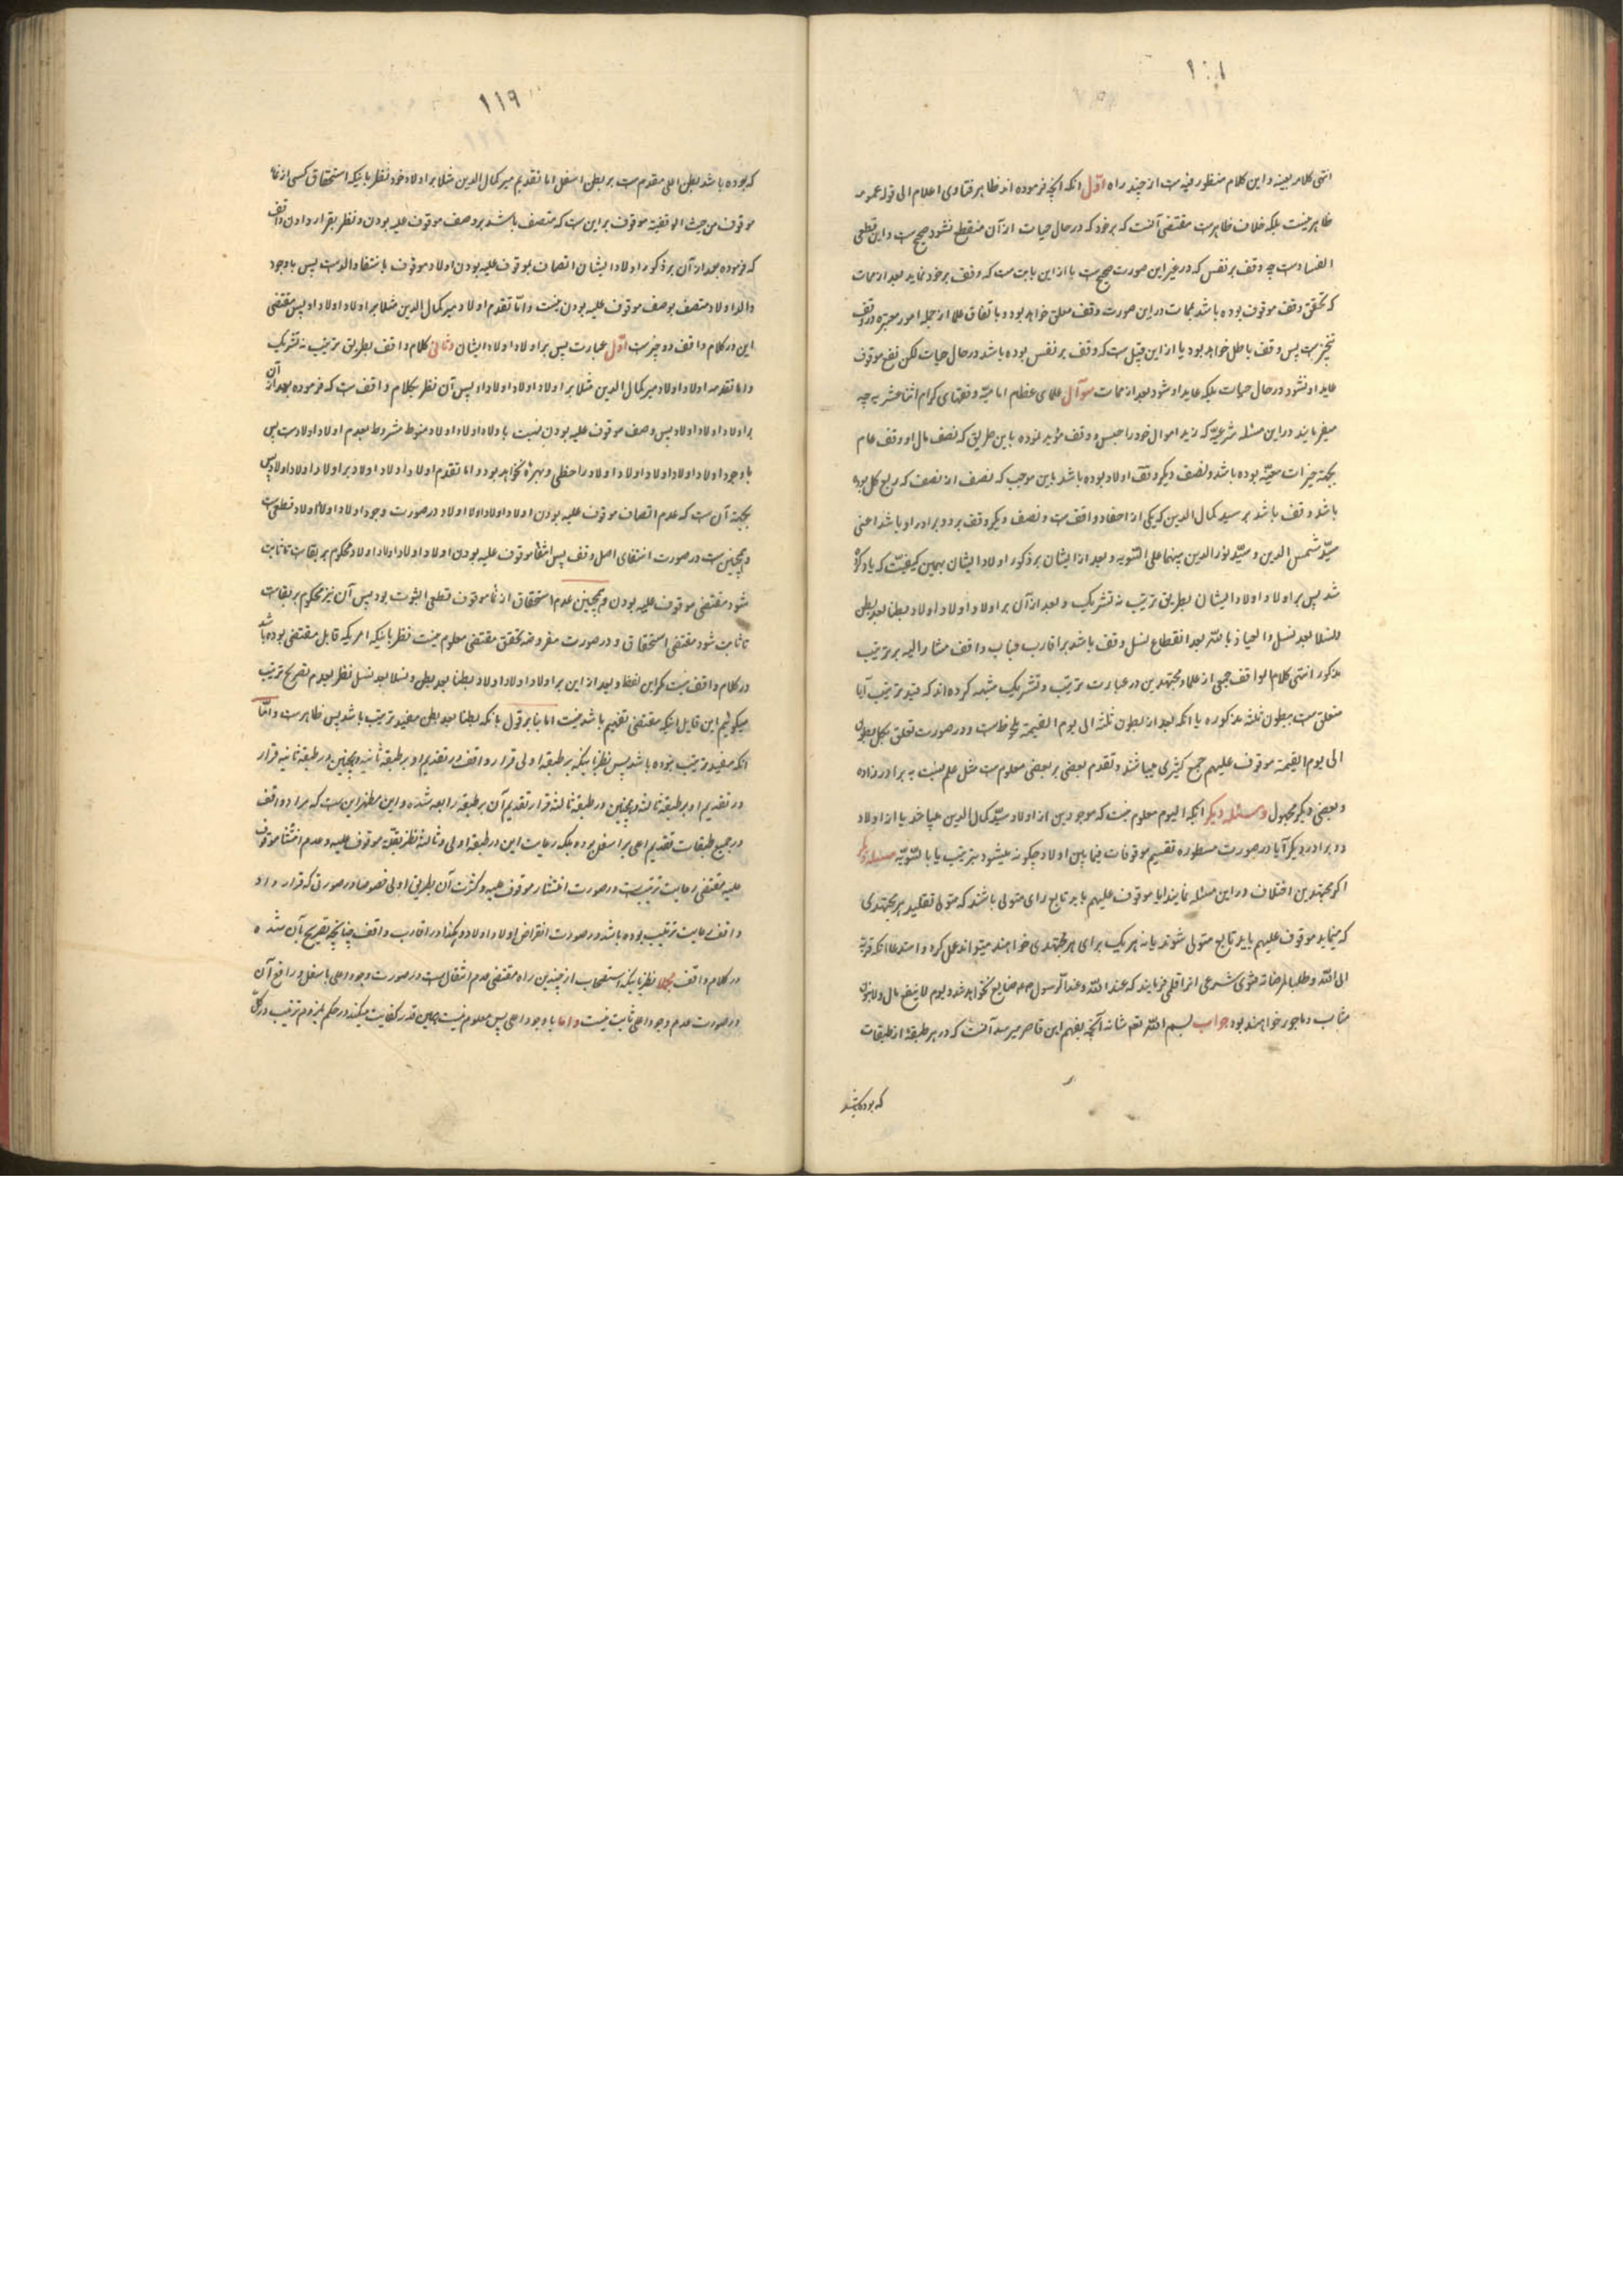 ۱۰۱
انتهی کلامه بعینه و این کلام منظور فیه است از چند راه اوّل آنکه آنچه فرموده‌اند ظاهر فتاوی اعلام الی قوله عمومه
ظاهر نیست بلکه خلاف ظاهرست مقتضی آنست که برخود که در حال حیات از آن منقطع نشود صحیح است و این قطعی
الفسادست چه وقف بر نفس که در غیر این صورت صحیح است یا از این بابت است که وقف بر خود نماید بعد از ممات
که تحقق وقف موقوف بوده باشد بممات در این صورت وقف معلق خواهد بود و باتفاق علما از جمله امور معتبره در وقف
تنجیزست پس وقف باطل خواهد بود یا از این قبیل است که وقف بر نفس بوده باشد در حال حیات لکن نفع موقوف
عاید او نشود در حال حیات بلکه عاید او شود بعد از ممات سوآل علمای عظام امامیّه و فقهای کرام اثناعشریه چه
میفرمایند در این مسئله شرعیّه که زید اموال خود را حبس و وقف مؤبد نموده باین طریق که نصف مال او وقف عام
بجهة خیرات معیّنه بوده باشد و نصف دیگر وقف اولاد بوده باشد باین موجب که نصف از نصف که ربع کل بوده
باشد وقف باشد بر سید کمال الدین که یکی از احفاد واقف است و نصف دیگر وقف بر دو برادر او باشد اعنی
سیّد شمس الدین و سیّد نور الدین بینهما علی السّویه و بعد از ایشان بر ذکور اولاد ایشان بهمین کیفیّت که یاد کرده
شد پس بر اولاد اولاد ایشان بطریق ترتیب نه تشریک و بعد از آن بر اولاد اولاد اولاد بطنا بعد بطن
و نسلا بعد نسل و العیاذ بالله بعد انقطاع نسل وقف باشد بر اقارب جناب واقف مشار الیه بر ترتیب
مذکور انتهی کلام الواقف جمعی از علما و مجتهدین در عبارت ترتیب و تشریک مشبه کرده‌اند که قید ترتیب آیا
متعلق است ببطون ثلثه مذکوره یا آنکه بعد از بطون ثلثه الی یوم القیمة ملحوظ است و در صورت تعلق بکل بطون
الی یوم القیمة موقوف علیهم جمع کثیری میباشند و تقدم بعضی بر بعضی معلوم است مثل عم نسبت به برادر زاده
و بعضی دیگر مجهول و مسئله دیگر آنکه الیوم معلوم نیست که موجودین از اولاد سیّد کمال الدین میباشد یا از اولاد
دو برادر دیگر آیا در صورت مسطوره تقسیم موقوفات فیمابین اولاد چگونه میشود بترتیب یا بالسّویّه مسئله دیگر
اگر مجتهدین اختلاف در این مسئله نمایند آیا موقوف علیهم باید تابع رای متولی باشند که متولی تقلید هر مجتهدی
که مینماید موقوف علیهم باید تابع متولی شوند یا نه هر یک برای هر مجتهدی خواهند میتواند عمل کرد و استدعا آنکه قربة
الی الله و طلبا لمرضاته فتوی شرعی انرا قلمی فرمایند که عند الله و عند الرّسول ضایع نخواهد شد و یوم لا ینفع مال و لا بنون
مثاب و ماجور خواهند بود جواب بسم الله تعم شانه آنچه بفهم این قاصر میرسد آنست که در هر طبقه از طبقات
که بوده باشد
۱۱۹
که بوده باشد بطن اعلی مقدم است بر بطن اسفل اما تقدیم میر کمال الدین مثلا بر اولاد خود نظر باینکه استحقاق کسی از نماء
موقوف من حیث الوقفیة موقوف بر این است که متصف باشد بوصف موقوف علیه بودن و نظر بقرار دادن واقف
که فرموده بعد از آن بر ذکور اولاد ایشان اتصاف بموقوف علیه بودن اولاد موقوف بانتفاء والدست پس با وجود
والد اولاد متصف بوصف موقوف علیه بودن نیست و امّا تقدم اولاد میر کمال الدین مثلا بر اولاد اولاد او پس مقتضی
این در کلام واقف دو چیزست اوّل عبارت پس بر اولاد اولاد ایشان و ثانی کلام واقف بطریق ترتیب نه تشریک
و اما تقدمه اولاد اولاد میر کمال الدین مثلا بر اولاد اولاد اولاد او پس آن نظر بکلام واقف است که فرموده بعد از آن
بر اولاد اولاد اولاد پس وصف موقوف علیه بودن نسبت باولاد اولاد اولاد منوط مشروط بعدم اولاد اولادست پس
با وجود اولاد اولاد اولاد اولاد اولاد را حظی و بهرۀ نخواهد بود و اما تقدم اولاد اولاد اولاد بر اولاد اولاد اولاد پس
بجهة آن است که عدم اتصاف موقوف علیه بودن اولاد اولاد اولاد اولاد در صورت وجود اولاد اولاد اولاد قطعی است
و همچنین است در صورت انتفای اصل وقف پس انتفاء موقوف علیه بودن اولاد اولاد اولاد اولاد محکوم بر بقاست تا ثابت
شود مقتضی موقوف علیه بودن و همچنین عدم استحقاق از نماء موقوف قطعی الثبوت بود پس آن نیز محکوم بر بقاست
تا ثابت شود مقتضی استحقاق و در صورت مفروضه تحقق مقتضی معلوم نیست نظر باینکه امریکه قابل مقتضی بوده باشد
در کلام واقف نیست مگر این لفظ و بعد از این بر اولاد اولاد اولاد بطنا بعد بطن و نسلا بعد نسل نظر بعدم تصریح ترتیب
میگوئیم این قایل اینکه مقتضی تفهیم باشد نیست اما بنا بر قول بانکه بطنا بعد بطن مفید ترتیب باشد پس ظاهرست و امّا
آنکه مفید ترتیب نبوده باشد پس نظر باینکه بر طبقه اولی قرار واقف در تقدیم او بر طبقه ثانیه و همچنین در طبقه ثانیه قرار
در تقدیم او بر طبقه ثالثه و همچنین در طبقه ثالثه قرار تقدیم آن بر طبقه رابعه شده و این مظهر این است که مراد واقف
در جمیع طبقات تقدیم اعلی بر اسفل بوده بلکه رعایت این در طبقه اولی و ثالثه نظر بقلّة موقوف علیه و عدم انتشار موقوف
علیه مقتضی رعایت ترتیب است در صورت انتشار موقوف علیه و کثرت آن بطریق اولی خصوصا در صورتی که قرار داد
واقف رعایت ترتیب بوده باشد در صورت انقراض اولاد اولاد و هکذا در اقارب واقف چنانچه تصریح بآن شده
در کلام واقف مجملا نظر باینکه استصحاب از چندین راه مقتضی عدم انتقال است در صورت وجود اعلی باسفل و رافع آن
در صورت عدم وجود اعلی ثابت نیست و اما با وجود اعلی پس معلوم نیست بهمین قدر کفایت میکند در حکم بلزوم ترتیب در کل